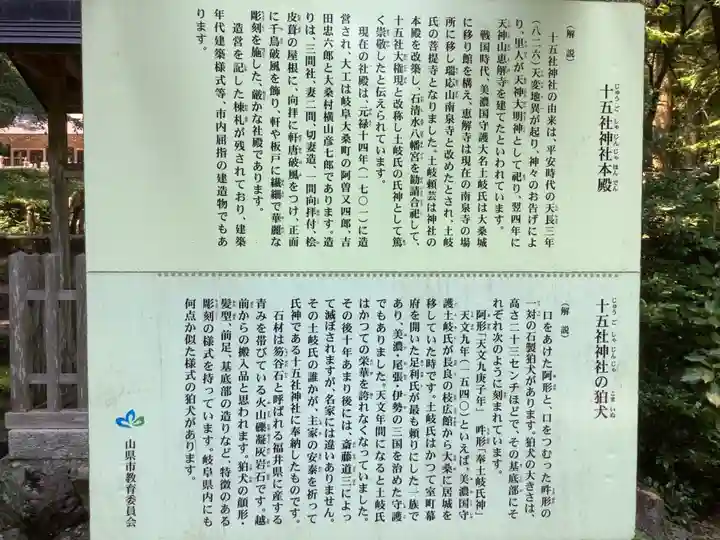 十五社神社本殿
じゅう ご しゃ じん じゃ ほん でん
(解説)
十五社神社の由来は、平安時代の天長三年
(八二六)天変地異が起り、神々のお告げによ
り、里人が天神大明神として祀り、翌四年に
天神山恵解寺を建てたといわれています。
戦国時代、美濃国守護大名土岐氏は大桑城
に移り館を構え、恵解寺は現在の南泉寺の場
所に移し瑞応山南泉寺と改めたとされ、土岐
氏の菩提寺となりました。土岐頼芸は神社の
本殿を改築し、石清水八幡宮を勧請合祀して、
十五社大権現と改称し土岐氏の氏神として篤
く崇敬したと伝えられています。
現在の社殿は、元禄十四年(一七〇一)に造
営され、大工は岐阜大桑町の阿曽又四郎、吉
田忠六郎と大桑村横山彦七郎であります。造
りは、三間社、妻二間、切妻造、一間向拝付、桧
皮葺の屋根に、向拝に軒唐破風をつけ、正面
に千鳥破風を飾り、軒や板戸に繊細で華麗な
彫刻を施した、厳かな社殿であります。
造営を記した棟札が残されており、建築
年代建築様式等、市内屈指の建造物でもあ
ります。
十五社神社の狛犬
じゅう ご しゃ じん じゃ こま いぬ
(解説)
口をあけた阿形と、口をつむった吽形の
一対の石製狛犬があります。狛犬の大きさは、
高さ二十三センチほどで、その基底部にそ
れぞれ次のように刻まれています。
阿形「天文九庚子年」 吽形「奉土岐氏神」
天文九年(一五四〇)といえば、美濃国守
護土岐氏が長良の枝広館から大桑に居城を
移していた時です。土岐氏はかつて室町幕
府を開いた足利氏が最も頼りにした一族で
あり、美濃・尾張・伊勢の三国を治めた守護
でもありました。天文年間になると土岐氏
はかつての栄華を誇れなくなっていました。
その後十年あまり後には、斎藤道三によっ
て滅ぼされますが、名家には違いありません。
その土岐氏の誰かが、主家の安泰を祈って
氏神である十五社神社に奉納したものです。
石材は笏谷石と呼ばれる福井県に産する
青みを帯びている火山礫凝灰岩石です。越
前からの搬入品と思われます。狛犬の顔形・
髪型、前足、基底部の造りなど、特徴のある
彫刻の様式を持っています。岐阜県内にも
何点か似た様式の狛犬があります。
山県市教育委員会